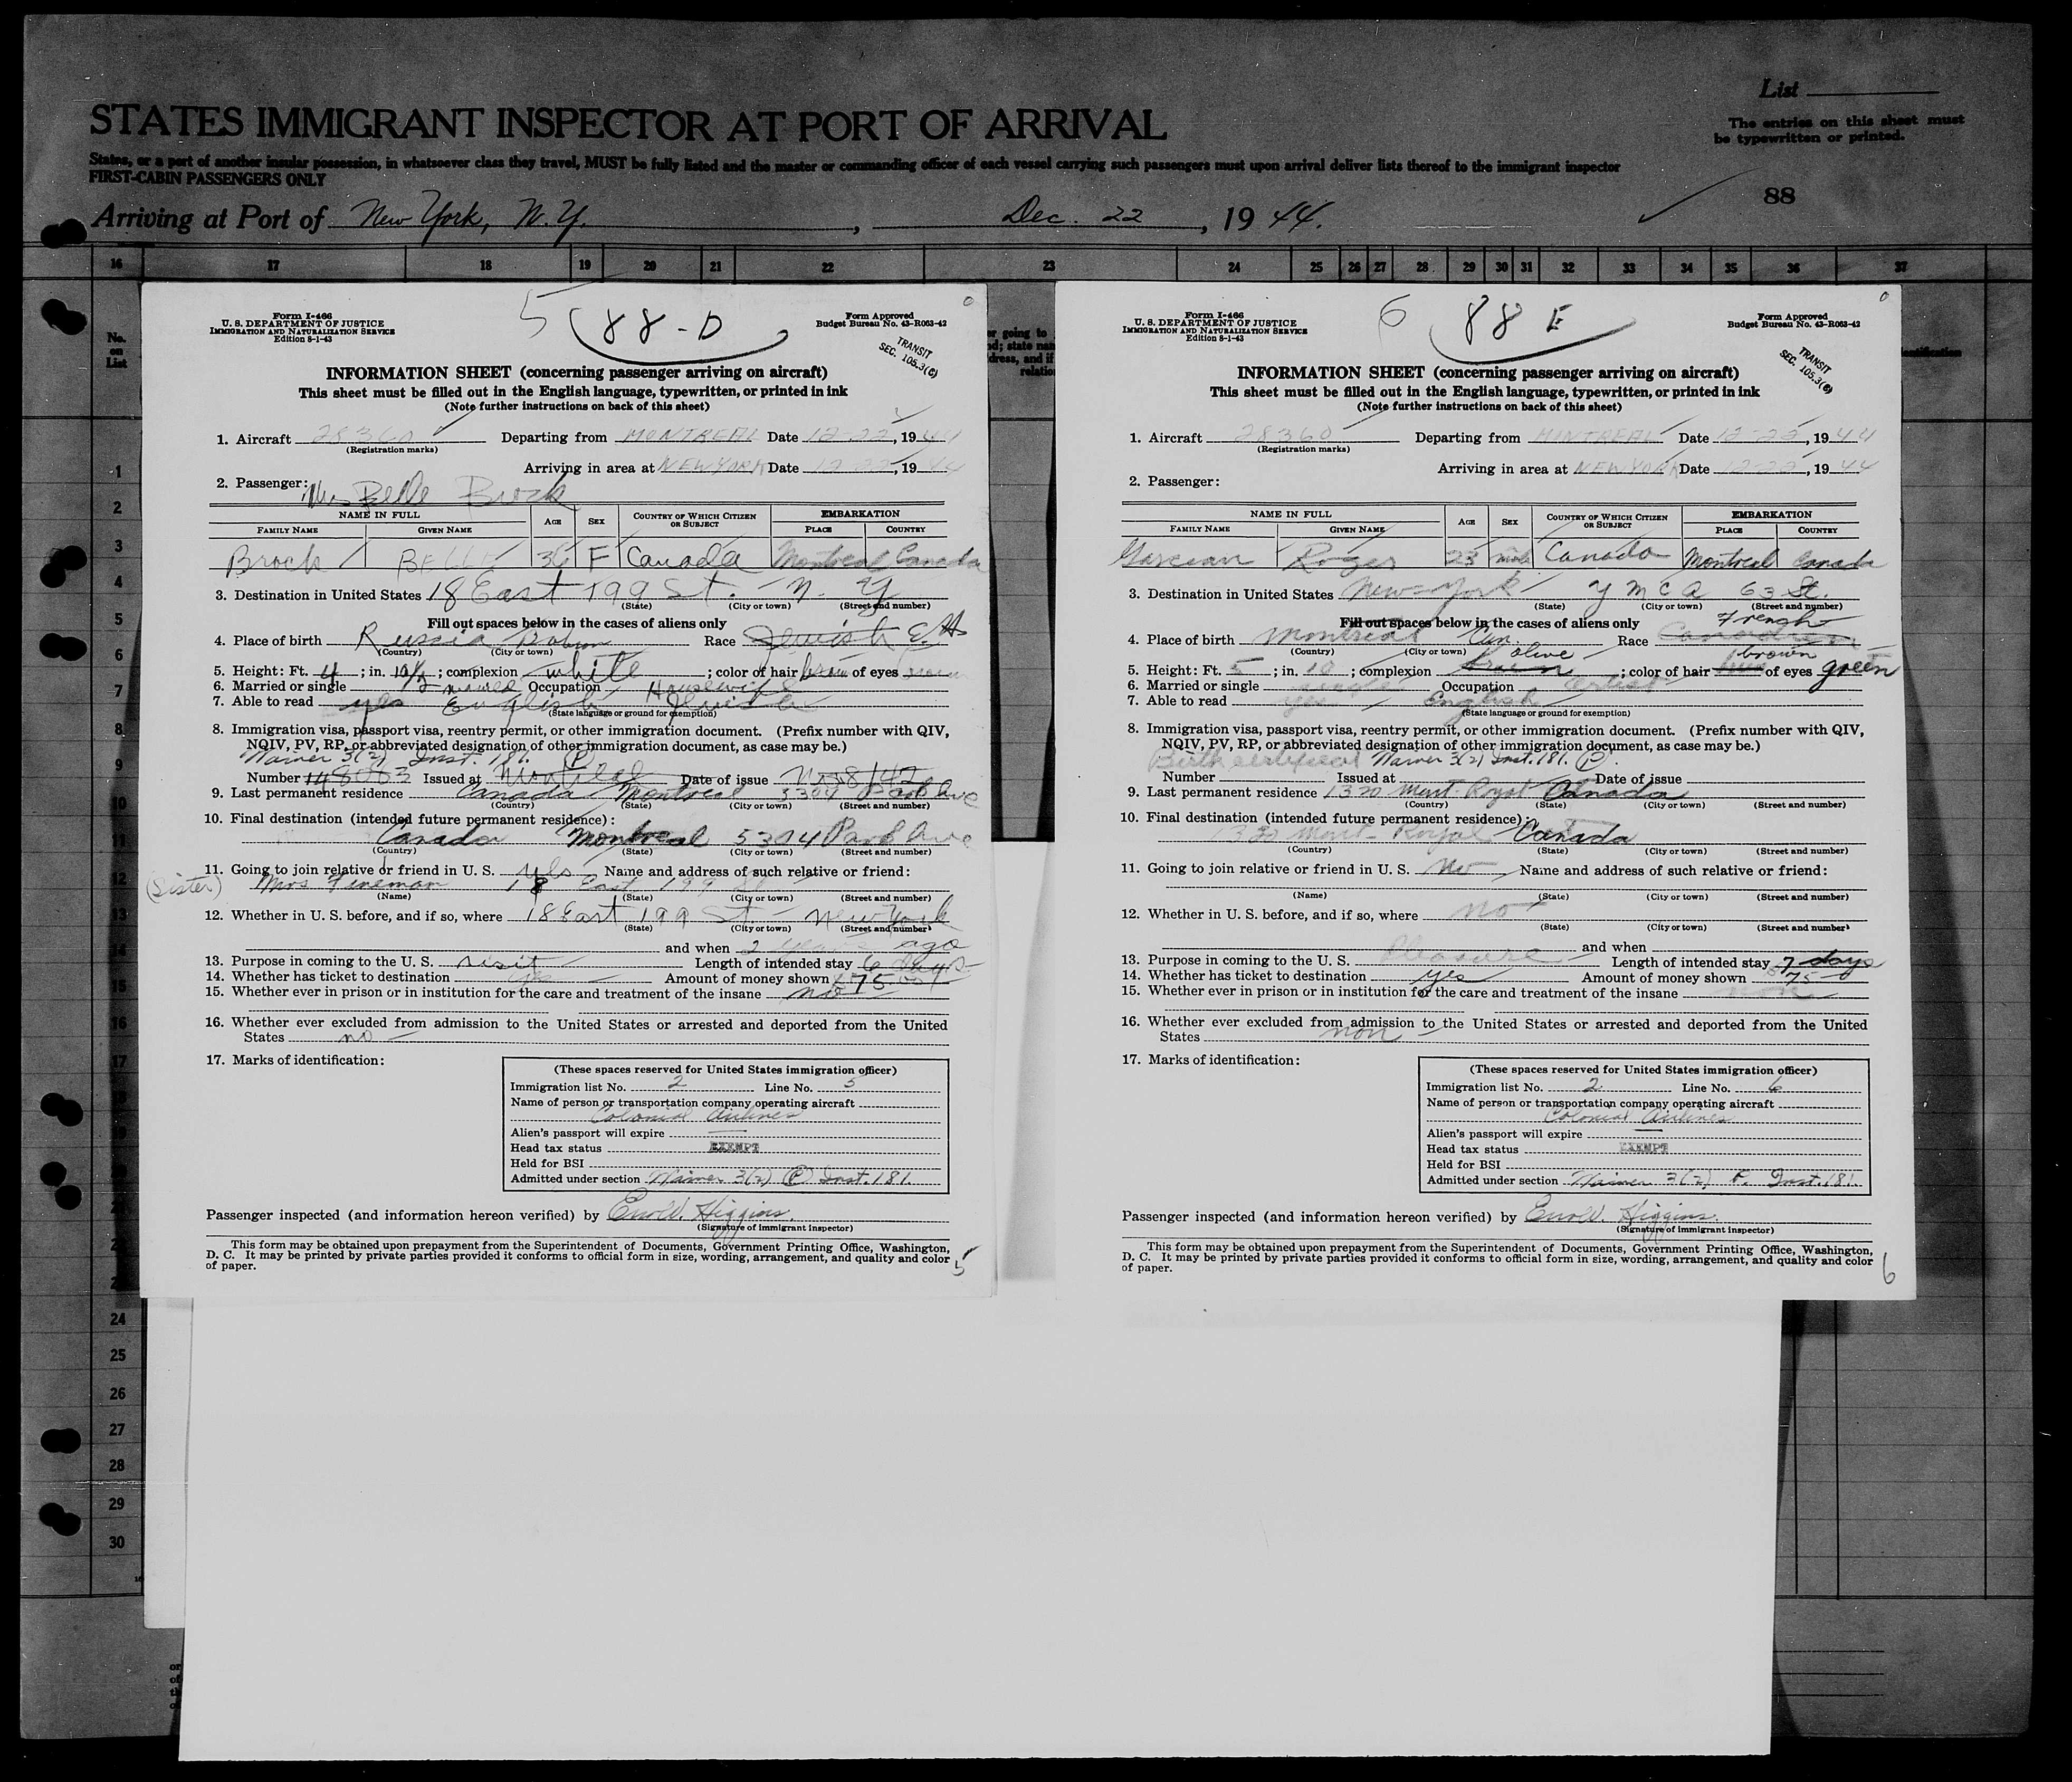 List
STATES IMMIGRANT INSPECTOR AT PORT OF ARRIVAL
The entries on this sheet must
be typewritten or printed.
States, or a port of another insular possession, in whatsoever class they travel, MUST be fully listed and the master or commanding officer of each vessel carrying such passengers must upon arrival deliver lists thereof to the immigrant inspector
FIRST-CABIN PASSENGERS ONLY
88
Arriving at Port of New York, N.Y., Dec. 22, 1944.
16 17 18 19 20 21 22 23 24 25 26 27 28 29 30 31 32 33 34 35 36 37
No.
on
List
1
2
3
4
5
6
7
8
9
10
11
12
13
14
15
16
17
24
25
26
27
28
29
30
5 88-D
Form I-466
U. S. DEPARTMENT OF JUSTICE
IMMIGRATION AND NATURALIZATION SERVICE
Edition 8-1-43
Form Approved
Budget Bureau No. 43-R063-42
TRANSIT
SEC. 105.3(c)
INFORMATION SHEET (concerning passenger arriving on aircraft)
This sheet must be filled out in the English language, typewritten, or printed in ink
(Note further instructions on back of this sheet)
1. Aircraft 28360 Departing from MONTREAL Date 12-22, 1944
(Registration marks)
Arriving in area at NEW YORK Date 12-22, 1944
2. Passenger: Mrs Belle Brock
NAME IN FULL AGE SEX COUNTRY OF WHICH CITIZEN OR SUBJECT EMBARKATION
FAMILY NAME GIVEN NAME PLACE COUNTRY
Brock BELLE 36 F Canada Montreal Canada
3. Destination in United States 18 East 199 St. N. Y
(State) (City or town) (Street and number)
Fill out spaces below in the cases of aliens only
4. Place of birth Russia Race Jewish
(Country) (City or town)
5. Height: Ft. 4; in. 10½; complexion white; color of hair brown of eyes
6. Married or single Occupation Housewife
7. Able to read yes English Jewish
(State language or ground for exemption)
8. Immigration visa, passport visa, reentry permit, or other immigration document. (Prefix number with QIV,
NQIV, PV, RP, or abbreviated designation of other immigration document, as case may be.)
Waiver 3(2) Inst. 181. P
Number 148063 Issued at Montreal Date of issue
9. Last permanent residence Canada Montreal 5304 Park Ave
(Country) (State) (City or town) (Street and number)
10. Final destination (intended future permanent residence):
Canada Montreal 5304 Park Ave
(Country) (State) (City or town) (Street and number)
11. Going to join relative or friend in U. S. yes Name and address of such relative or friend:
(Sister) Mrs Fineman 18 East 199 St
(Name) (State) (City or town) (Street and number)
12. Whether in U. S. before, and if so, where 18 East 199 St. - New York
(State) (City or town) (Street and number)
and when 2 years ago
13. Purpose in coming to the U. S. visit Length of intended stay 6 days
14. Whether has ticket to destination yes Amount of money shown 75
15. Whether ever in prison or in institution for the care and treatment of the insane no
16. Whether ever excluded from admission to the United States or arrested and deported from the United
States no
17. Marks of identification:
(These spaces reserved for United States immigration officer)
Immigration list No. 2 Line No. 5
Name of person or transportation company operating aircraft
Colonial Airlines
Alien's passport will expire
Head tax status EXEMPT
Held for BSI
Admitted under section Waiver 3(2) P Inst. 181.
Passenger inspected (and information hereon verified) by Higgins.
(Signature of immigrant inspector)
This form may be obtained upon prepayment from the Superintendent of Documents, Government Printing Office, Washington,
D. C. It may be printed by private parties provided it conforms to official form in size, wording, arrangement, and quality and color
of paper.
5
6 88 E
Form I-466
U. S. DEPARTMENT OF JUSTICE
IMMIGRATION AND NATURALIZATION SERVICE
Edition 8-1-43
Form Approved
Budget Bureau No. 43-R063-42
TRANSIT
SEC. 105.3(c)
INFORMATION SHEET (concerning passenger arriving on aircraft)
This sheet must be filled out in the English language, typewritten, or printed in ink
(Note further instructions on back of this sheet)
1. Aircraft 28360 Departing from MONTREAL Date 12-22, 1944
(Registration marks)
Arriving in area at NEW YORK Date 12-22, 1944
2. Passenger:
NAME IN FULL AGE SEX COUNTRY OF WHICH CITIZEN OR SUBJECT EMBARKATION
FAMILY NAME GIVEN NAME PLACE COUNTRY
Garceau Roger 23 male Canada Montreal Canada
3. Destination in United States New-York Y M C A 63 St.
(State) (City or town) (Street and number)
Fill out spaces below in the cases of aliens only
French
4. Place of birth Montreal Can. Race Canadien
(Country) (City or town)
olive brown
5. Height: Ft. 5; in. 10; complexion brown; color of hair of eyes green
6. Married or single single Occupation Artist
7. Able to read yes English
(State language or ground for exemption)
8. Immigration visa, passport visa, reentry permit, or other immigration document. (Prefix number with QIV,
NQIV, PV, RP, or abbreviated designation of other immigration document, as case may be.)
Birth certificat Waiver 3(2) Inst. 181. P.
Number Issued at Date of issue
9. Last permanent residence 1320 Mont-Royal Canada
(Country) (State) (City or town) (Street and number)
10. Final destination (intended future permanent residence):
1320 Mont-Royal Canada
(Country) (State) (City or town) (Street and number)
11. Going to join relative or friend in U. S. No Name and address of such relative or friend:
(Name) (State) (City or town) (Street and number)
12. Whether in U. S. before, and if so, where no
(State) (City or town) (Street and number)
and when
13. Purpose in coming to the U. S. Pleasure Length of intended stay 7 days
14. Whether has ticket to destination yes Amount of money shown 75
15. Whether ever in prison or in institution for the care and treatment of the insane non
16. Whether ever excluded from admission to the United States or arrested and deported from the United
States non
17. Marks of identification:
(These spaces reserved for United States immigration officer)
Immigration list No. 2 Line No. 6
Name of person or transportation company operating aircraft
Colonial Airlines
Alien's passport will expire
Head tax status EXEMPT
Held for BSI
Admitted under section Waiver 3(2) P. Inst. 181.
Passenger inspected (and information hereon verified) by Higgins.
(Signature of immigrant inspector)
This form may be obtained upon prepayment from the Superintendent of Documents, Government Printing Office, Washington,
D. C. It may be printed by private parties provided it conforms to official form in size, wording, arrangement, and quality and color
of paper.
6